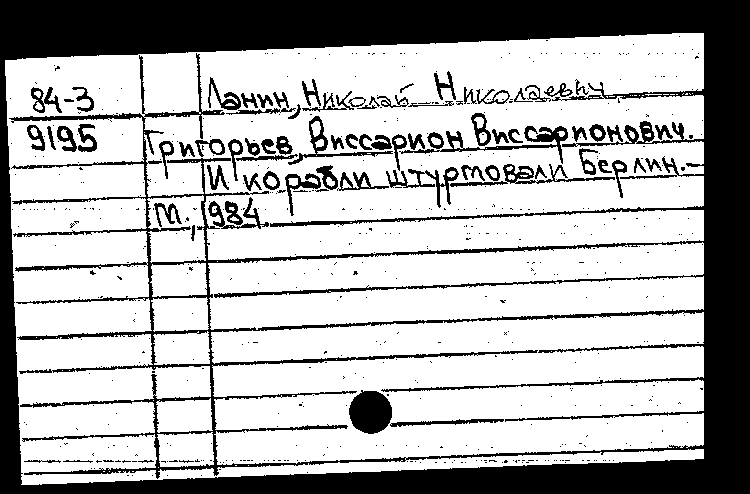 84-3 Ланин, Николай Николаевич
9195 Григорьев, Виссарион Виссарионович.
И корабли штурмовали Берлин.-
М., 1984